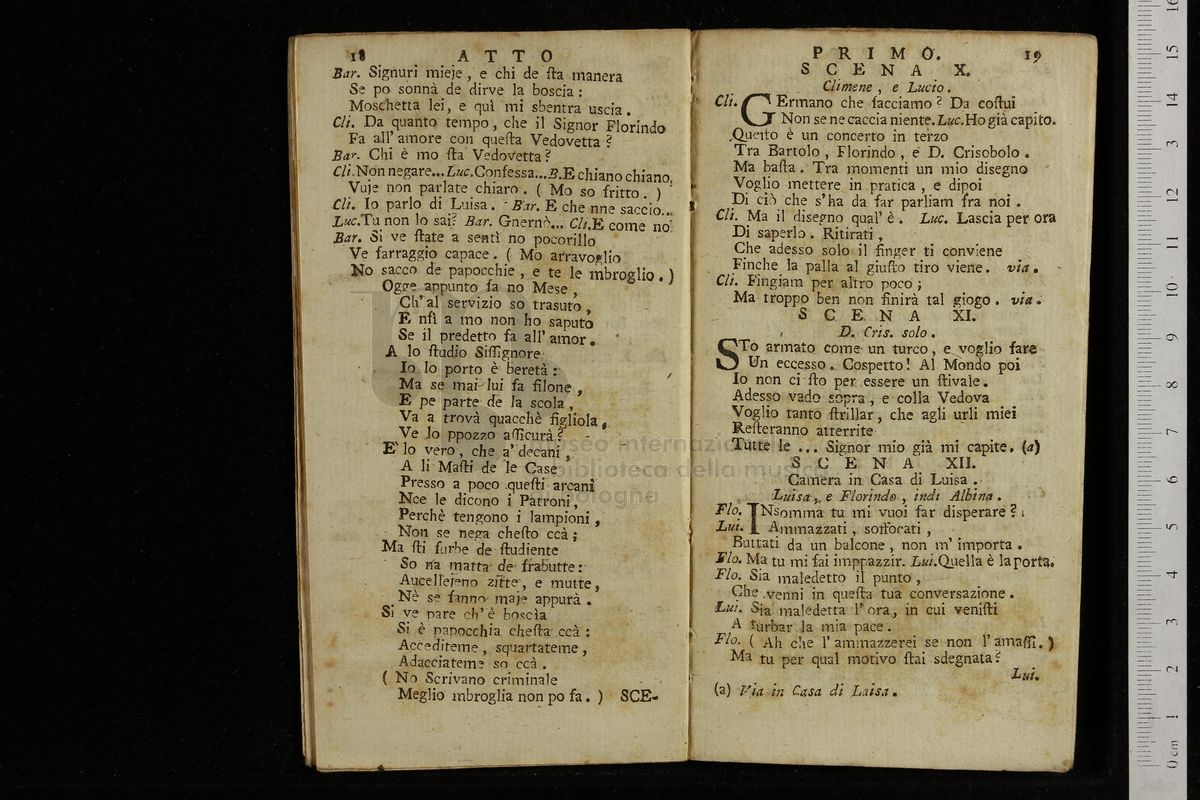 18 ATTO
Bar. Signuri mieje, e chi de sta manera
Se po sonnà de dirve la boscia:
Moschetta lei, e quì mi sbentra uscia.
Cli. Da quanto tempo, che il Signor Florindo
Fa all'amore con questa Vedovetta?
Bar. Chi è mo sta Vedovetta?
Cli. Non negare... Luc. Confessa... B. E chiano chiano,
Vuje non parlate chiaro. ( Mo so fritto. )
Cli. Io parlo di Luisa. Bar. E che nne saccio...
Luc. Tu non lo sai? Bar. Gnernò... Cli. E come no?
Bar. Si ve state a sentì no pocorillo
Ve farraggio capace. ( Mo arravoglio
No sacco de papocchie, e te le mbroglio. )
Ogge appunto fa no Mese,
Ch'al servizio so trasuto,
E nfi a mo non ho saputo
Se il predetto fa all'amor.
A lo studio Sissignore
Io lo porto è beretà:
Ma se mai lui fa filone,
E pe parte de la scola,
Va a trovà quacchè figliola,
Ve lo ppozzo assicurà?
E' lo vero, che a' decani,
A li Masti de le Case
Presso a poco questi arcani
Nce le dicono i Patroni,
Perchè tengono i lampioni,
Non se nega chesto ccà;
Ma sti furbe de studiente
So na matta de frabutte:
Aucellejeno zitte, e mutte,
Nè se fanno maje appurà.
Si ve pare ch'è boscia
Si è papocchia chesta ccà:
Accediteme, squartateme,
Adacciateme so ccà.
( No Scrivano criminale
Meglio mbroglia non po fa. ) SCE-
PRIMO. 19
SCENA X.
Climene, e Lucio.
Cli. GErmano che facciamo? Da costui
Non se ne caccia niente. Luc. Ho già capito.
Questo è un concerto in terzo
Tra Bartolo, Florindo, e D. Crisobolo.
Ma basta. Tra momenti un mio disegno
Voglio mettere in pratica, e dipoi
Di ciò che s'ha da far parliam fra noi.
Cli. Ma il disegno qual'è. Luc. Lascia per ora
Di saperlo. Ritirati,
Che adesso solo il finger ti conviene
Finche la palla al giusto tiro viene. via.
Cli. Fingiam per altro poco;
Ma troppo ben non finirà tal giogo. via.
SCENA XI.
D. Cris. solo.
STo armato come un turco, e voglio fare
Un eccesso. Cospetto! Al Mondo poi
Io non ci sto per essere un stivale.
Adesso vado sopra, e colla Vedova
Voglio tanto strillar, che agli urli miei
Resteranno atterrite
Tutte le ... Signor mio già mi capite. (a)
SCENA XII.
Camera in Casa di Luisa.
Luisa, e Florindo, indi Albina.
Flo. INsomma tu mi vuoi far disperare?
Lui. Ammazzati, soffocati,
Buttati da un balcone, non m'importa.
Flo. Ma tu mi fai imppazzir. Lui. Quella è la porta.
Flo. Sia maledetto il punto,
Che venni in questa tua conversazione.
Lui. Sia maledetta l'ora, in cui venisti
A turbar la mia pace.
Flo. ( Ah che l'ammazzerei se non l'amassi. )
Ma tu per qual motivo stai sdegnata?
Lui.
(a) Via in Casa di Laisa.
museo internazionale
biblioteca della musica
bologna
0 cm 1 2 3 4 5 6 7 8 9 10 11 12 13 14 15 16